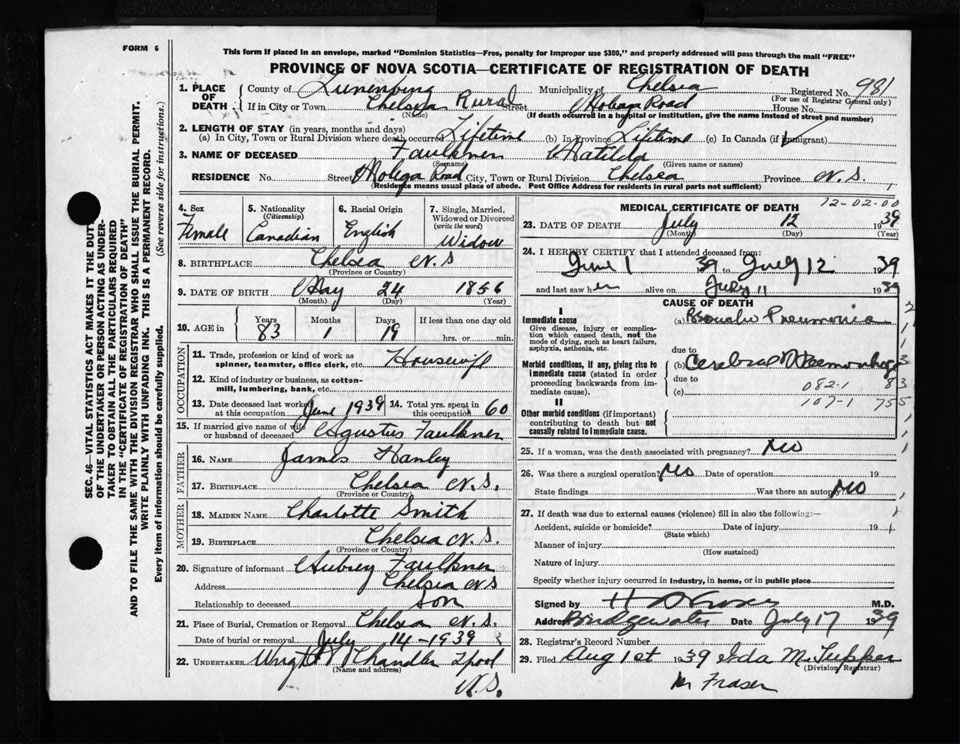 FORM 6
This form if placed in an envelope, marked "Dominion Statistics—Free, penalty for improper use $300," and properly addressed will pass through the mail "FREE"
PROVINCE OF NOVA SCOTIA—CERTIFICATE OF REGISTRATION OF DEATH
SEC. 46—VITAL STATISTICS ACT MAKES IT THE DUTY
OF THE UNDERTAKER OR PERSON ACTING AS UNDER-
TAKER TO OBTAIN ALL THE PARTICULARS REQUIRED
IN THE "CERTIFICATE OF REGISTRATION OF DEATH"
AND TO FILE THE SAME WITH THE DIVISION REGISTRAR WHO SHALL ISSUE THE BURIAL PERMIT.
WRITE PLAINLY WITH UNFADING INK. THIS IS A PERMANENT RECORD.
Every item of information should be carefully supplied. (See reverse side for instructions.)
1. PLACE OF DEATH County of Lunenburg Municipality of Chelsea Registered No. 981
(For use of Registrar General only)
If in City or Town Chelsea Rural Street Molega Road House No.
(Name) (If death occurred in a hospital or institution, give the name instead of street and number)
2. LENGTH OF STAY (in years, months and days)
(a) In City, Town or Rural Division where death occurred Lifetime (b) In Province Lifetime (c) In Canada (if immigrant)
3. NAME OF DECEASED Faulkner Matilda
(Surname) (Given name or names)
RESIDENCE No. Street Molega Road City, Town or Rural Division Chelsea Province N.S.
(Residence means usual place of abode. Post Office Address for residents in rural parts not sufficient)
4. Sex Female
5. Nationality (Citizenship) Canadian
6. Racial Origin English
7. Single, Married, Widowed or Divorced (write the word) Widow
8. BIRTHPLACE Chelsea N S
(Province or Country)
9. DATE OF BIRTH May 24 1856
(Month) (Day) (Year)
10. AGE in Years 83 Months 1 Days 19 If less than one day old hrs. or min.
OCCUPATION
11. Trade, profession or kind of work as spinner, teamster, office clerk, etc. Housewife
12. Kind of industry or business, as cotton-mill, lumbering, bank, etc.
13. Date deceased last worked at this occupation June 1939 14. Total yrs. spent in this occupation 60
15. If married give name of wife or husband of deceased Agustus Faulkner
FATHER
16. NAME James Hanley
17. BIRTHPLACE Chelsea N.S.
(Province or Country)
MOTHER
18. MAIDEN NAME Charlotte Smith
19. BIRTHPLACE Chelsea N.S.
(Province or Country)
20. Signature of informant Aubrey Faulkner
Address Chelsea N S
Relationship to deceased Son
21. Place of Burial, Cremation or Removal Chelsea N.S.
Date of burial or removal July 14-1939
22. UNDERTAKER Wright Chandler Lpool
(Name and address)
N.S.
MEDICAL CERTIFICATE OF DEATH 12-02-00
23. DATE OF DEATH July 12 1939
(Month) (Day) (Year)
24. I HEREBY CERTIFY that I attended deceased from:
June 1 39 to July 12 1939
and last saw her alive on July 11 1939
CAUSE OF DEATH
I
Immediate cause
Give disease, injury or complication which caused death, not the mode of dying, such as heart failure, asphyxia, asthenia, etc.
(a) Broncho Pneumonia
due to
Morbid conditions, if any, giving rise to immediate cause (stated in order proceeding backwards from immediate cause).
(b) Cerebral Haemorrhage
due to
082-1 83
(c) 107-1 755
II
Other morbid conditions (if important) contributing to death but not causally related to immediate cause.
25. If a woman, was the death associated with pregnancy? No
26. Was there a surgical operation? No Date of operation 19
State findings Was there an autopsy? No
27. If death was due to external causes (violence) fill in also the following:—
Accident, suicide or homicide? Date of injury 19
(State which)
Manner of injury
(How sustained)
Nature of injury
Specify whether injury occurred in industry, in home, or in public place
Signed by M.D.
Address Bridgewater Date July 17 1939
28. Registrar's Record Number
29. Filed Aug 1st 1939 Ida M. Tupper
(Division Registrar)
Fraser